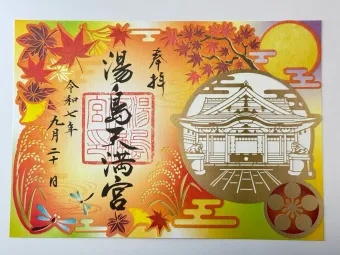 奉拝
湯島天満宮
令和七年
九月二十日